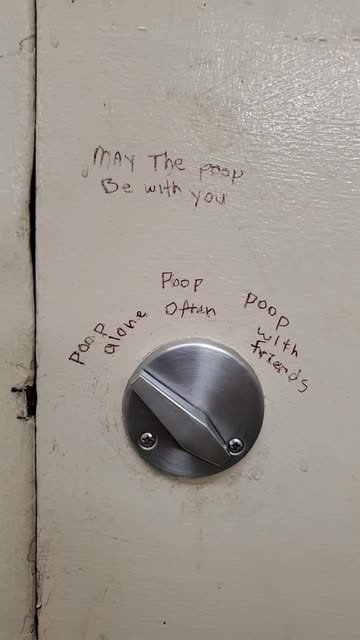 MAY The poop
Be with you
Poop
alone
Poop
Often
Poop
with
friends